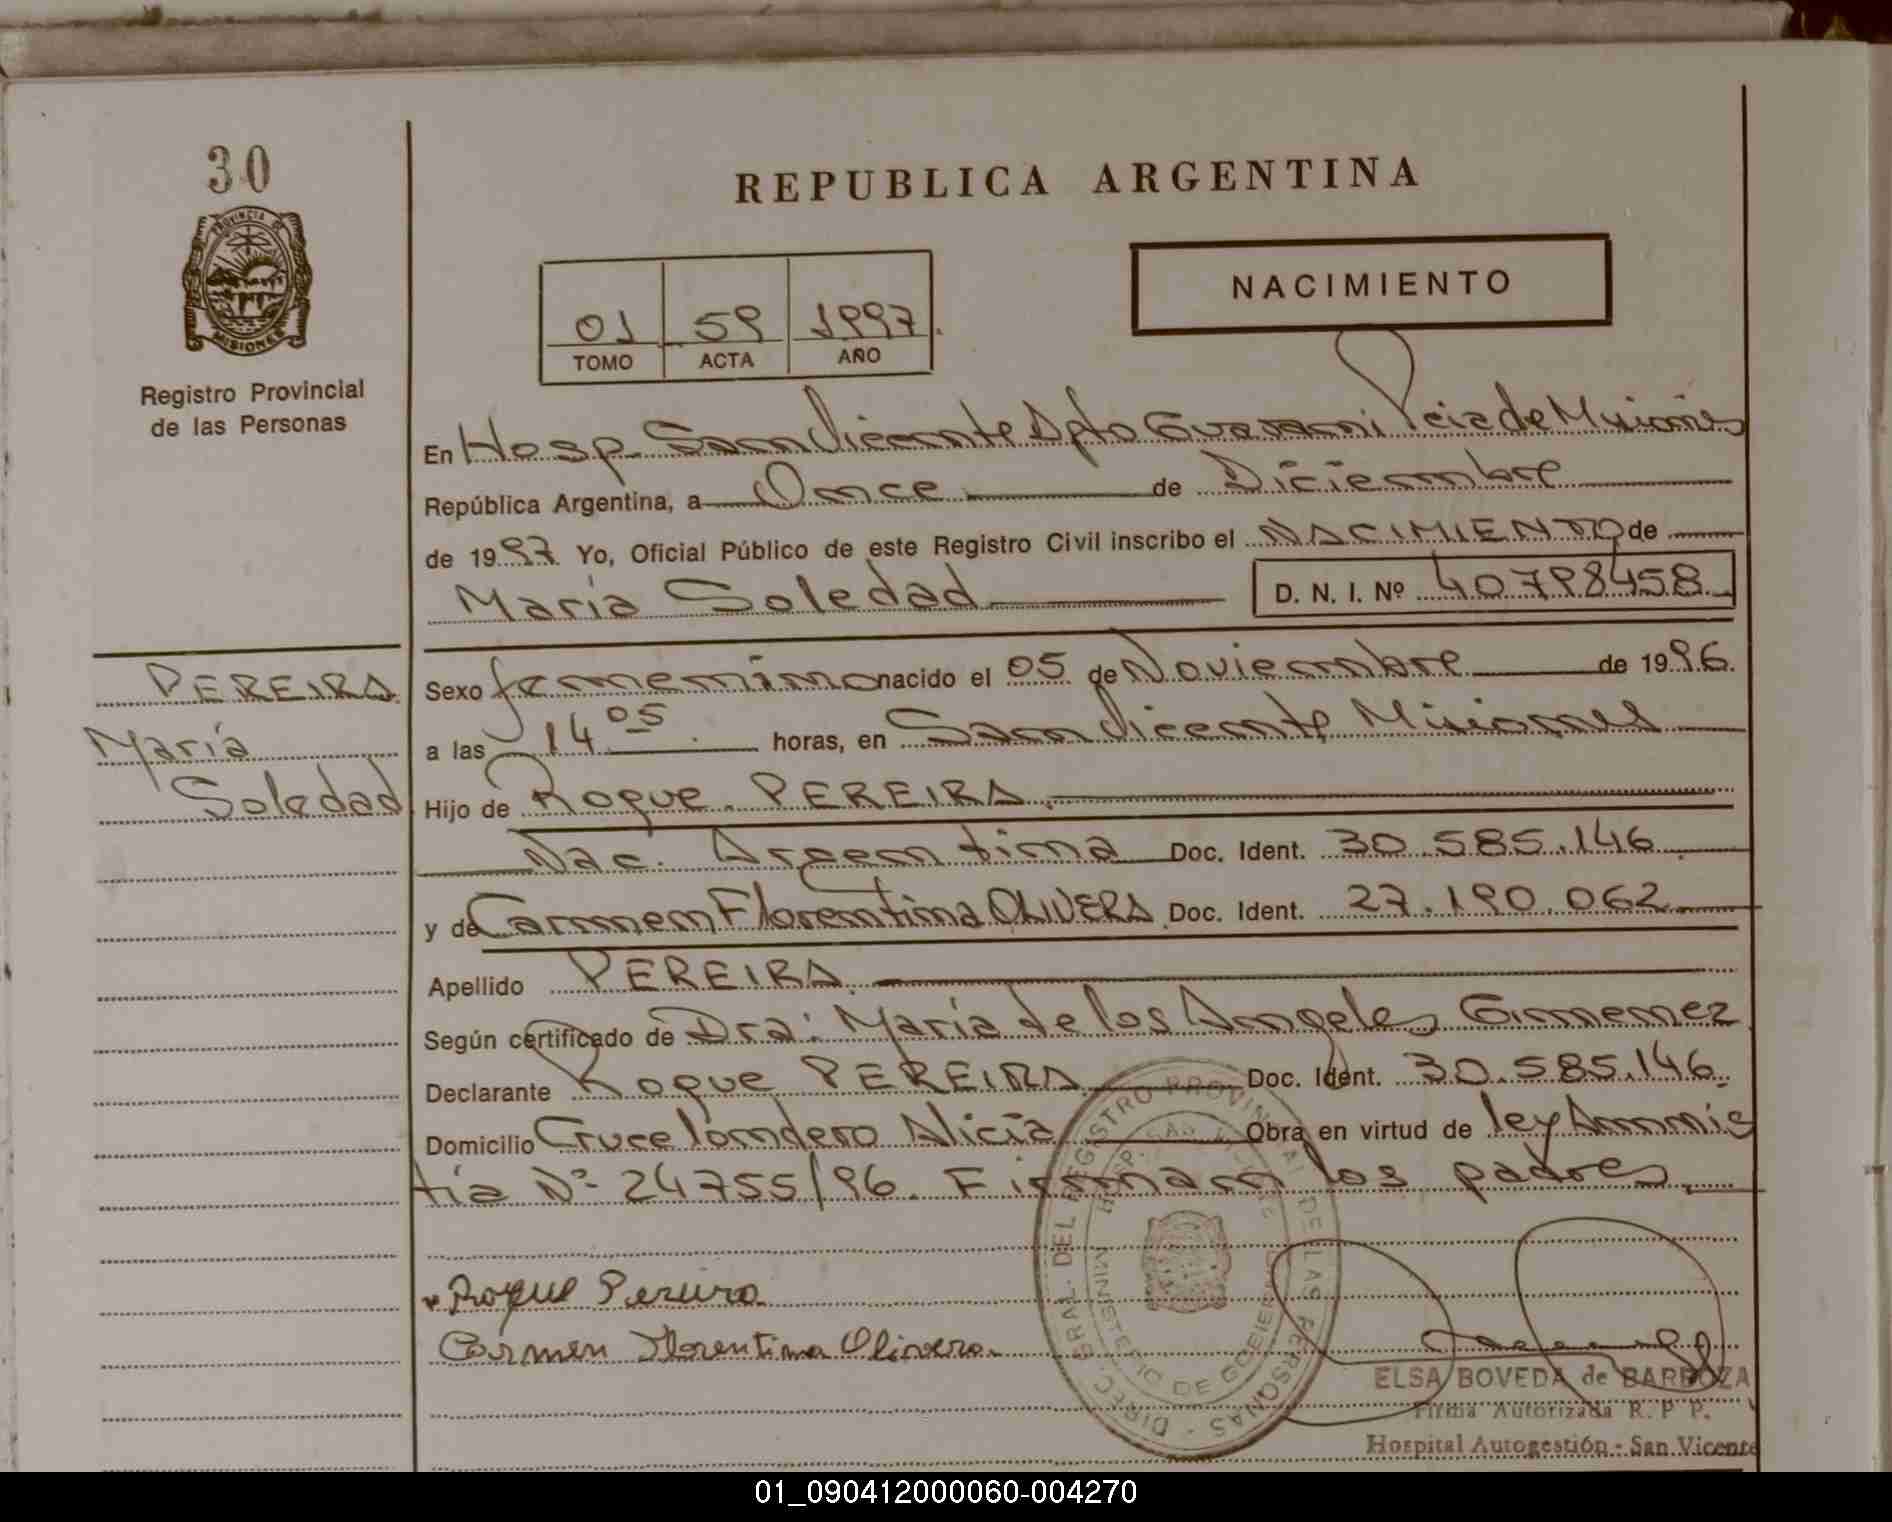 30
PROVINCIA DE
MISIONES
Registro Provincial
de las Personas
REPUBLICA ARGENTINA
01 59 1997
TOMO ACTA AÑO
NACIMIENTO
En Hosp. San Vicente Dpto Guarani Pcia de Misiones
República Argentina, a Once de Diciembre
de 1997 Yo, Oficial Público de este Registro Civil inscribo el NACIMIENTO de
María Soledad D. N. I. Nº 40798458
PEREIRA
María
Soledad
Sexo femenino nacido el 05 de Noviembre de 1996.
a las 14 05 horas, en San Vicente Misiones
Hijo de Roque PEREIRA
Nac. Argentina Doc. Ident. 30.585.146
y de Carmen Florentina OLIVERA Doc. Ident. 27.190.062
Apellido PEREIRA
Según certificado de Dra: María de los Angeles Gimenez
Declarante Roque PEREIRA Doc. Ident. 30.585.146.
Domicilio Cruce Londero Alicia Obra en virtud de ley Amnis
tía Nº 24755/96. Firman los padres.
Roque Pereira
Carmen Florentina Olivera
DIREC. GRAL. DEL REGISTRO PROVINCIAL DE LAS PERSONAS
MINISTERIO DE GOBIERNO
ELSA BOVEDA de BARBOZA
Firma Autorizada R. P. P.
Hospital Autogestión - San Vicente
01_090412000060-004270